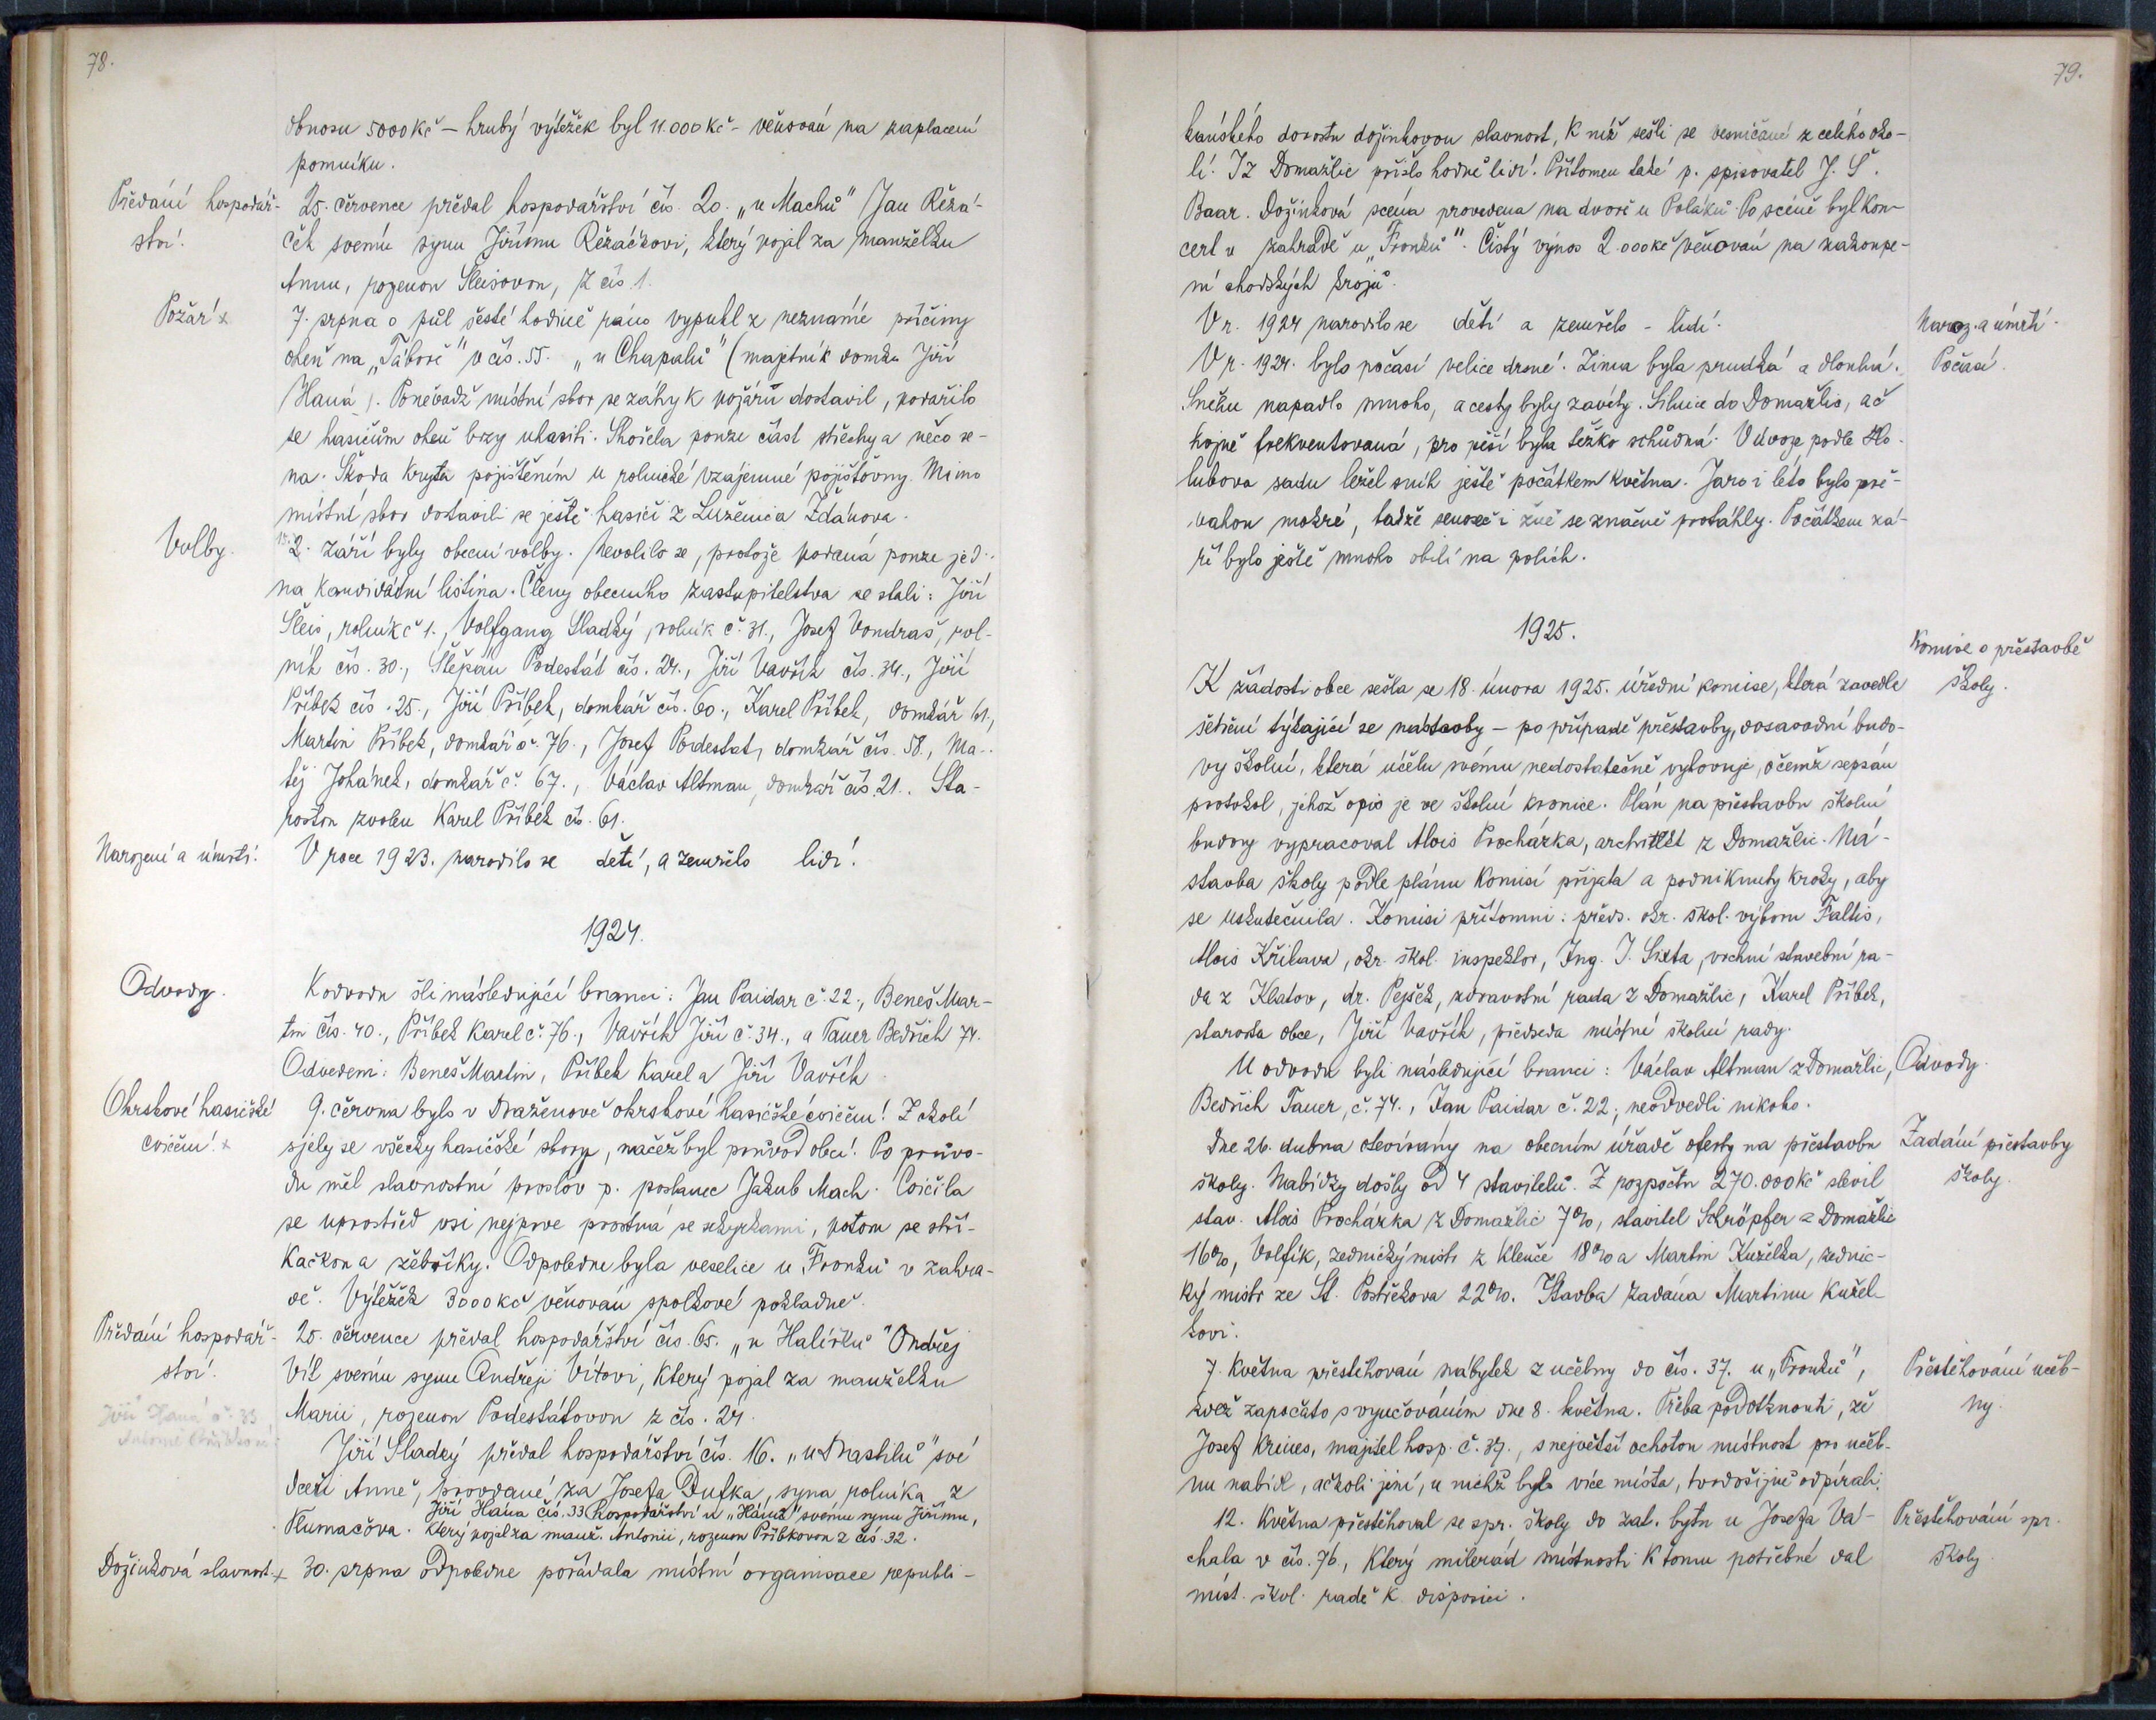 78.
obnosu 5000 Kč – hrubý výtěžek byl 11.000 Kč – věnován na zaplacení
pomníku.
Předání hospodář-
ství.
25. července předal hospodářství čís. 20. „u Machů" Jan Řezá-
ček svému synu Jiřímu Řezáčkovi, který pojal za manželku
Annu, rozenou Šleisovou, z čís. 1.
Požár x
7. srpna o půl šesté hodině ráno vypukl z neznámé příčiny
oheň na „Táboře" v čís. 55. „u Chapalů" (majetník domku Jiří
Haná). Poněvadž místní sbor se záhy k požáru dostavil, podařilo
se hasičům oheň brzy uhasiti. Shořela pouze část střechy a něco se-
na. Škoda kryta pojištěním u rolnické vzájemné pojišťovny. Mimo
místní sbor dostavili se ještě hasiči z Luženic a Ždánova.
Volby.
15. 2. září byly obecní volby. Nevolilo se, protože podaná pouze jed-
na kandidátní listina. Členy obecního zastupitelstva se stali: Jiří
Šleis, rolník č 1., Volfgang Sladký, rolník č. 31., Josef Vondraš, rol-
ník čís. 30., Štěpán Podestát čís. 24., Jiří Vavřík čís. 34., Jiří
Příbek čís. 25., Jiří Příbek, domkář čís. 60., Karel Příbek, domkář 61.,
Martin Příbek, domkář č. 76., Josef Podestát, domkář čís. 58., Ma-
těj Johánek, domkář č. 67., Václav Altman, domkář čís. 21.. Sta-
rostou zvolen Karel Příbek čís. 61.
Narození a úmrtí.
V roce 1923. narodilo se dětí, a zemřelo lidí.
1924.
Odvody.
K odvodu šli následující branci: Jan Paidar č. 22., Beneš Mar-
tin čís. 40., Příbek Karel č. 76., Vavřík Jiří č. 34., a Tauer Bedřich 74.
Odvedeni: Beneš Martin, Příbek Karel a Jiří Vavřík.
Okrskové hasičské
cvičení. x
9. června bylo v Draženově okrskové hasičské cvičení. Z okolí
sjely se všecky hasičské sbory, načež byl průvod obcí. Po průvo-
du měl slavnostní proslov p. poslanec Jakub Mach. Cvičila
se uprostřed vsi nejprve prostná se sekyrkami, potom se stří-
kačkou a žebříky. Odpoledne byla veselice u „Fronků" v zahra-
dě. Výtěžek 3000 Kč věnován spolkové pokladně.
Předání hospodář-
ství.
25. července předal hospodářství čís. 65. „u Halířků" Ondřej
Vít svému synu Andřeji Vítovi, který pojal za manželku
Marii, rozenou Podestátovou z čís. 24.
Jiří Haná č. 33
Jiří Sladký předal hospodářství čís. 16. „u Mastilů" své
dceři Anně, provdané za Josefa Dufka, syna rolníka z
Jiří Hána čís. 33 hospodářství u „Hánů" svému synu Jiřímu,
Tlumačova. který pojal za manž. Antonii, rozenou Příbkovou z čís. 32.
Dožinková slavnost. x
30. srpna odpoledne pořádala místní organisace republi-
79.
kánského dorostu dožinkovou slavnost, k níž sešli se vesničané z celého oko-
lí. Iz Domažlic přišlo hodně lidí. Přítomen také p. spisovatel J. Š.
Baar. Dožinková scéna provedena na dvoře u Poláků. Po scéně byl kon-
cert v zahradě u „Fronků". Čistý výnos 2.000 Kč věnován na zakoupe-
ní chodských krojů.
V r. 1924 narodilo se dětí a zemřelo – lidí.
Naroz. a úmrtí.
V r. 1924. bylo počasí velice drsné. Zima byla prudká a dlouhá.
Počasí.
Sněhu napadlo mnoho, a cesty byly zaváty. Silnice do Domažlic, ač
hojně frekventovaná, pro pěší byla těžko schůdná. V úvoze podle Ho-
lubova sadu ležel sníh ještě počátkem května. Jaro i léto bylo pře-
vahou mokré, takže senoseč i žně se značně protáhly. Počátkem zá-
ří bylo ještě mnoho obilí na polích.
1925.
Komise o přestavbě
školy.
K žádosti obce sešla se 18. února 1925. úřední komise, která zavedla
šetření týkající se nástavby – po případě přestavby, dosavadní budo-
vy školní, která účelu svému nedostatečně vyhovuje, o čemž sepsán
protokol, jehož opis je ve školní kronice. Plán na přestavbu školní
budovy vypracoval Alois Procházka, architekt z Domažlic. Ná-
stavba školy podle plánu komisí přijata a podniknuty kroky, aby
se uskutečnila. Komisi přítomni: předs. okr. škol. výboru Faltis,
Alois Křikava, okr. škol. inspektor, Ing. J. Sixta, vrchní stavební ra-
da z Klatov, dr. Pejšek, zdravotní rada z Domažlic, Karel Příbek,
starosta obce, Jiří Vavřík, předseda místní školní rady.
U odvodu byli následující branci: Václav Altman z Domažlic,
Odvody.
Bedřich Tauer, č. 74., Jan Paidar č. 22., neodvedli nikoho.
Dne 26. dubna otevírány na obecním úřadě oferty na přestavbu
Zadání přestavby
školy.
školy. Nabídky došly od 4 stavitelů. Z rozpočtu 270.000 Kč slevil
stav. Alois Procházka z Domažlic 7%, stavitel Schröpfer z Domažlic
16%, Volfík, zednický mistr z Klenče 18% a Martin Kuželka, zednic-
ký mistr ze St. Postřekova 22%. Stavba zadána Martinu Kužel-
kovi.
7. května přestěhován nábytek z učebny do čís. 37. u „Fronků",
Přestěhování učeb-
ny.
zvež započato s vyučováním dne 8. května. Třeba podotknouti, že
Josef Kreines, majitel hosp. č. 37., s největší ochotou místnost pro učeb-
nu nabídl, ačkoli jiní, u nichž bylo více místa, tvrdošíjně odpírali.
12. května přestěhoval se spr. školy do zat. bytu u Josefa Vá-
Přestěhování spr.
školy.
chala v čís. 76, který milerád místnosti k tomu potřebné dal
míst. škol. radě k disposici.